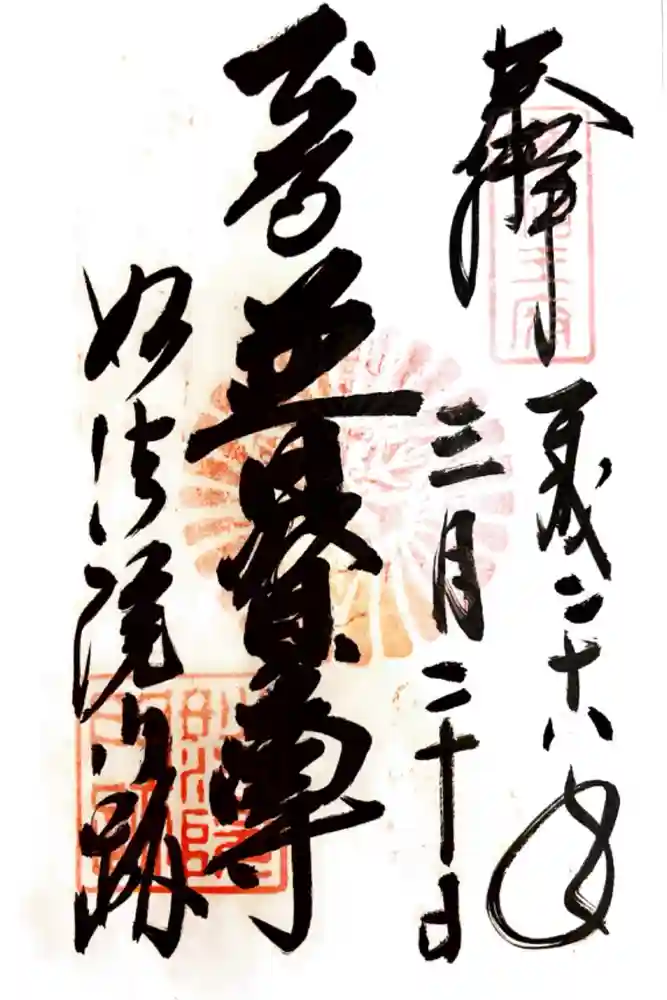 奉拝 平成二十八年
三月二十日
普賢尊
妙法院門跡